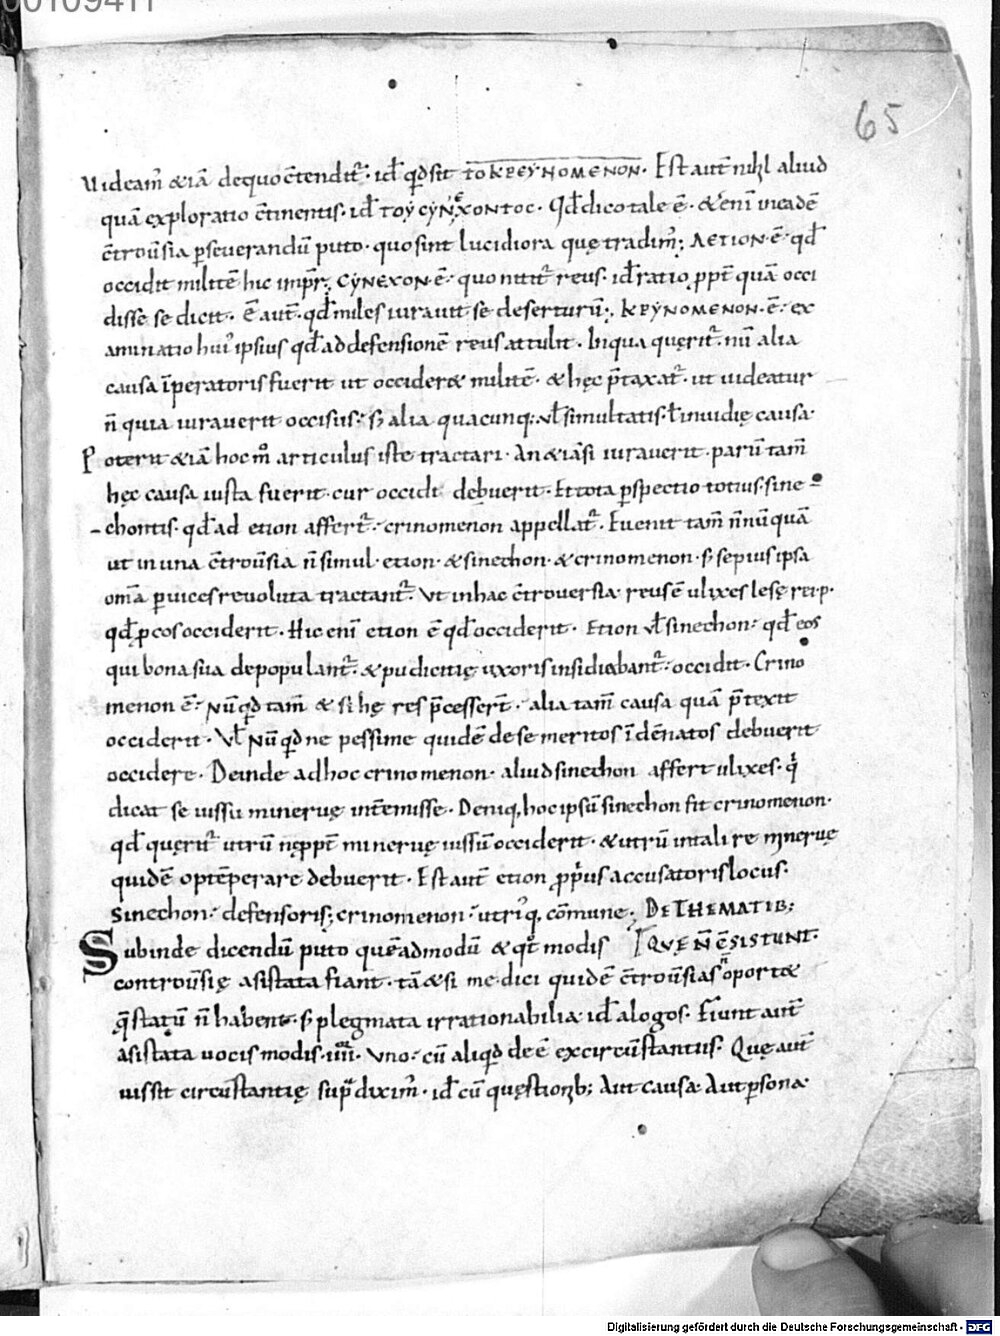 00109411
65
Uideam̄ &iā dequoc̄tendit᷑. id̄ qd̄ sit τοκρεγνομενον. Est aut̄ nihl aliud
quā exploratio c̄tinentis. id̄ τογςγνεχοντος. Qd̄ dico tale ē. &eni̅ in eadē
c̄trou̅sia p̱seuerandū puto. quo sint lucidiora quę tradim᷒; ΛΕΤΙΟΝ·ē· qd̄
occidit militē hic imp̄r; CΥΝΕΧΟΝ·ē· quo nitit᷑ reus. id̄ ratio ꝓpt̄ quā occi
disse se dicit. Ē aut̄ qd̄ miles iurauit se deserturū; ΚΡΥΝΟΜΕΝΟΝ·ē· ex
aminatio hui᷒ ipsius qd̄ ad defensionē reus attulit. In qua quęrit᷑. nū alia
causa īperatoris fuerit ut occider& militē. & hęc p̄taxat᷑. ut uideatur
n̄ quia iurauerit occisus. s; alia quacunq; ul̄ simultatis. ł inuidię causa.
Poterit &iā hoc m̊ articulus iste tractari. An &iāsi iurauerit. parū tam̄
hęc causa iusta fuerit. cur occidi debuerit. Et tota p̱spectio totius. sine
-chontis. qd̄ ad etion affert᷑. crinomenon appellat᷑. Euenit tam̄ n̄nūquā
ut in una c̄trou̅sia n̄ simul. etion. & sinechon. & crinomenon. s; sepius ipsa
om̄a p̱ uices reuoluta tractant᷑. Ut in hac c̄trouersia. reus ē ulixes lesę reip.
qd̄ p̱cos occiderit. Hic eni̅ etion ē qd̄ occiderit. Etion ul̄ sinechon. qd̄ eos
qui bona sua depopulant᷑. & pudicitię uxoris insidiabant᷑. occidit. Crino
menon ē. nūqd̄ tam̄ & si hę res p̄cessert̄. alia tam̄ causa quā p̄texit
occiderit. Ul̄ nūqd̄ ne pessime quidē de se meritos īdēnatos debuerit
occidere. Deinde ad hoc crinomenon. aliud sinechon affert ulixes. q̇
dicat se iussu mineruę int̄emisse. Deniq; hoc ipsū sinechon fit crinomenon.
qd̄ quęrit᷑ utrū nę ꝓpt̄ mineruę iussū occiderit. & utrū in tali re mineruę
quidē optēperare debuerit. Est aut̄ etion ꝓp̍us accusatoris locus.
Sinechon. defensoris; crinomenon. utri᷒q; cōmune; DE THEMATIB;
Subinde dicendū puto quēadmodū & qt̊ modis QVĘ N̄ C̄SISTVNT.
controu̅się asistata fiant. tā&si me dici quidē c̄trou̅sias n̄ oport&
q̄ statū n̄ habent. s; plegmata irrationabilia id̄ alogos. Fiunt aut̄
asistata uocis modis. iiii. Uno. cū aliqd̄ deē ex circūstantiis. Quę aut̄
uissit circūstantię sup̄ dixim᷒. id̄ cū quęstionib; Aut causa. Aut p̱sona.
Digitalisierung gefördert durch die Deutsche Forschungsgemeinschaft - DFG